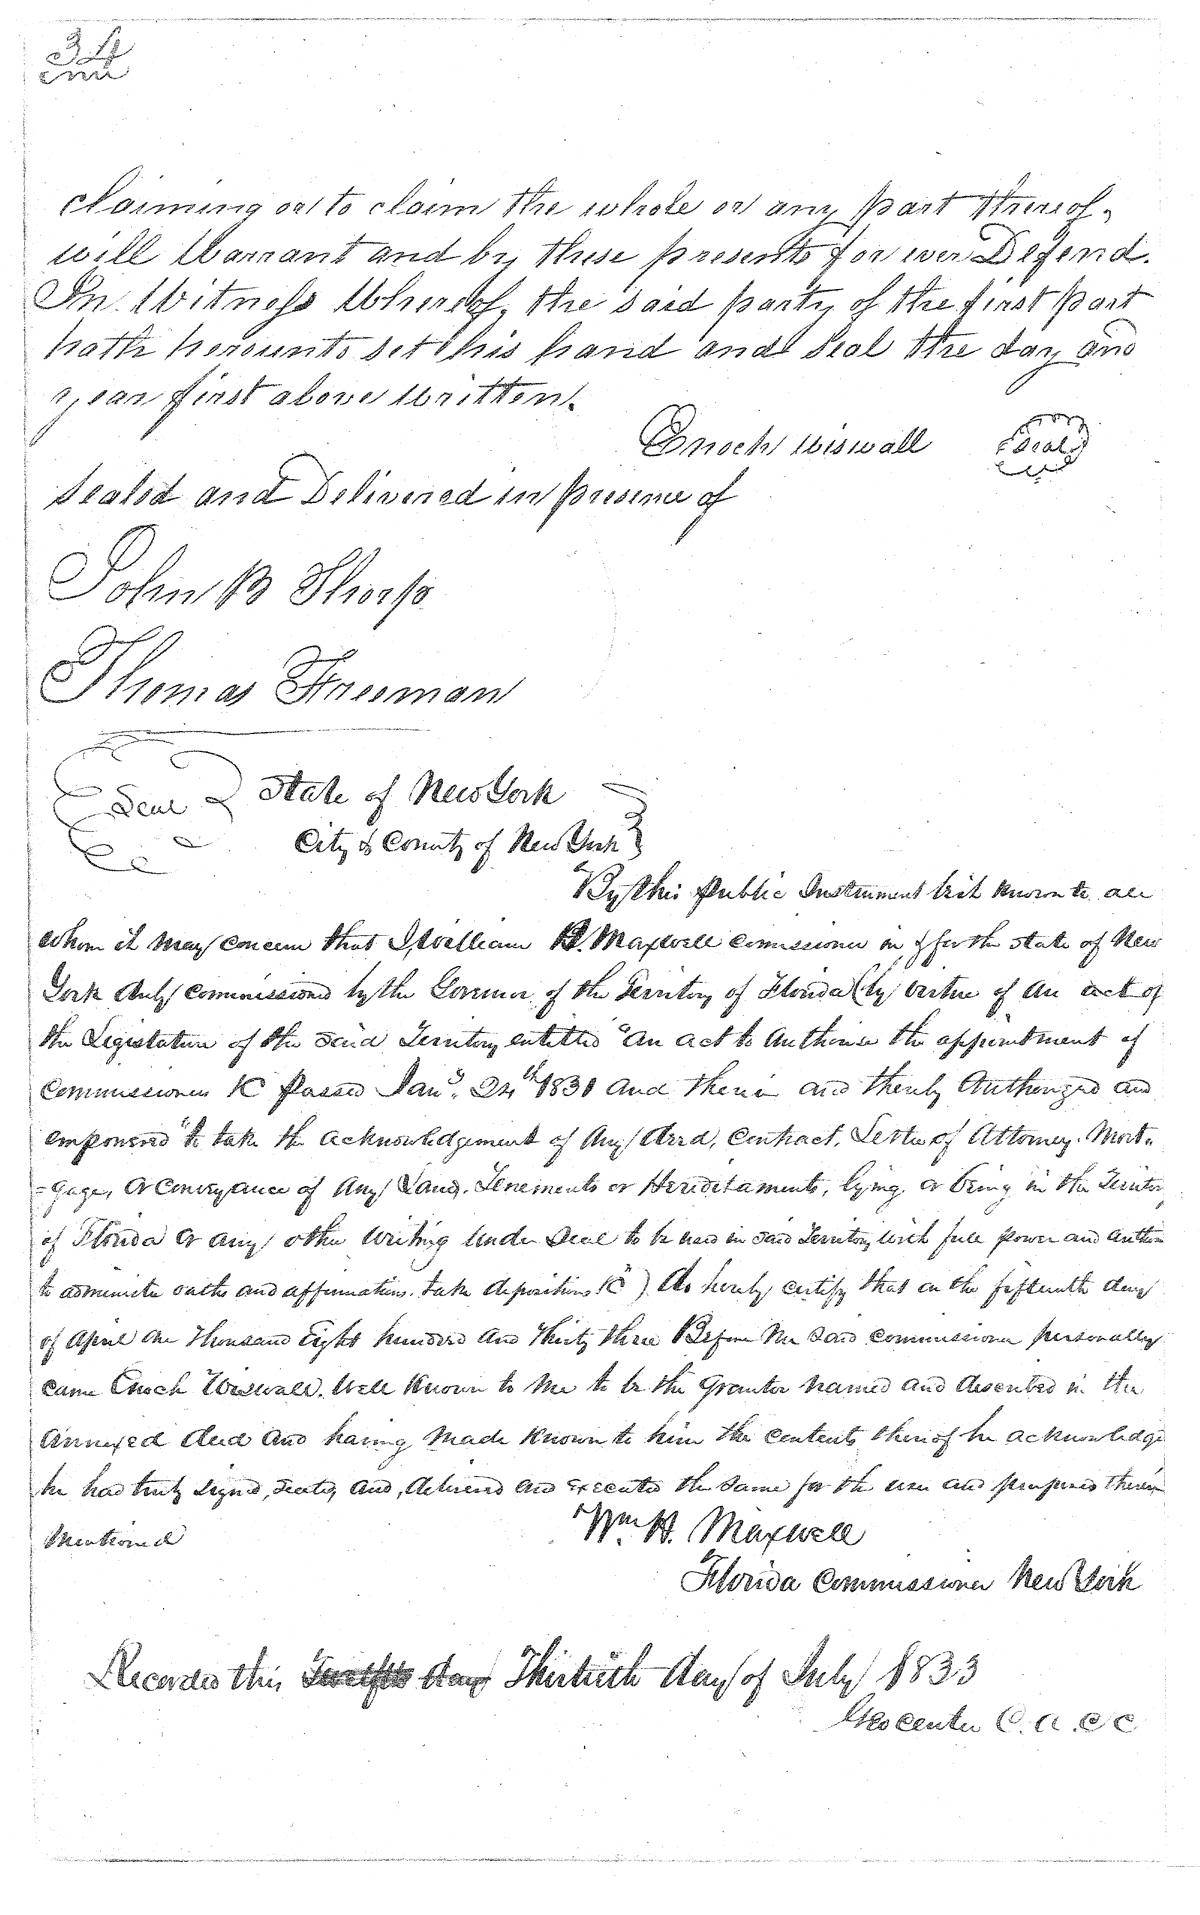 34
claiming or to claim the whole or any part thereof,
will Warrant and by these presents for ever Defend.
In Witness Whereof, the said party of the first part
hath hereunto set his hand and Seal the day and
year first above written.
Enoch Wiswall Seal
Sealed and Delivered in presence of
John B Thorp
Thomas Freeman
Seal State of New York
City & County of New York
By this Public Instrument be it known to all
whom it may concern that I, William H. Maxwell Comissioner in & for the State of New
York duly commissioned by the Governor of the Territory of Florida (by virtue of an act of
the Legislature of the said Territory entitled "An act to Authorise the appointment of
Commissioners &c Passed Jany. 24th 1831 and therein and thereby Authorized and
empowered "to take the acknowledgement of any Deed, Contract, Letter of Attorney. Mort-
-gage, or conveyance of any Land. Tenements or Hereditaments, lying or being in the Territory
of Florida or any other Writing Under Seal to be used in said Territory with full power and Authority
to administer oaths and affirmations. take depositions &c") do hereby certify that on the fifteenth day
of April one thousand Eight hundred and thirty three Before Me said Commissioner personally
came Enoch Wiswall. Well Known to me to be the Grantor named and described in the
annexed deed and having made known to him the contents thereof he acknowledged
he had truly signed, sealed, and, delivered and executed the same for the uses and purposes therein
Mentioned
Wm. H. Maxwell
Florida Commissioner New York
Recorded this Twelfth day Thirtieth day of July 1833
Geo Center C. A. C C